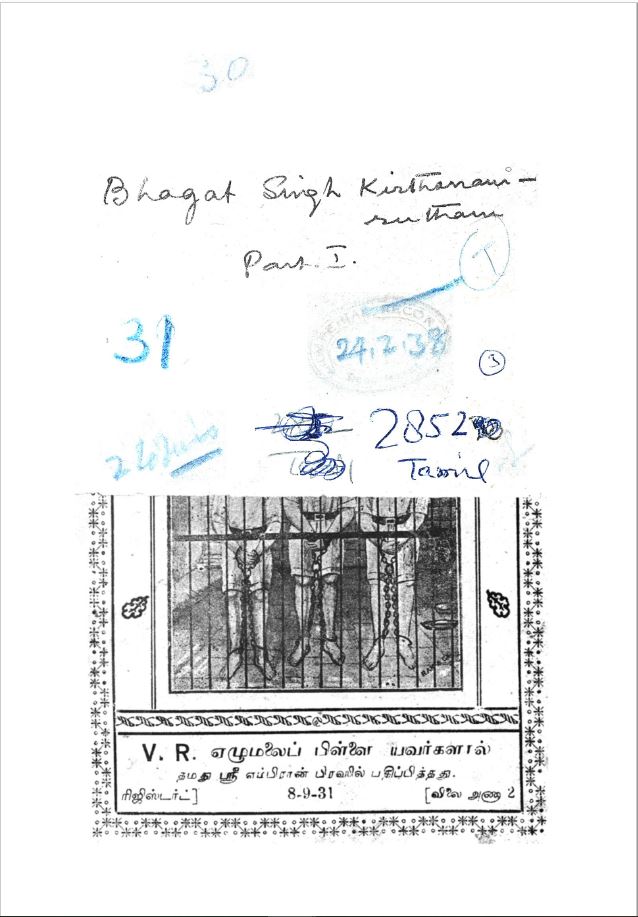 30
Bhagat Singh Kirthanami-
rutham
Part. I.
T
31
24.2.38
3
2852
Tamil
V. R. ஏழுமலைப் பிள்ளை யவர்களால்
தமது ஸ்ரீ எம்பிரான் பிரஸில் பதிப்பித்தது.
ரிஜிஸ்டர்ட்] 8-9-31 [விலை அணா 2